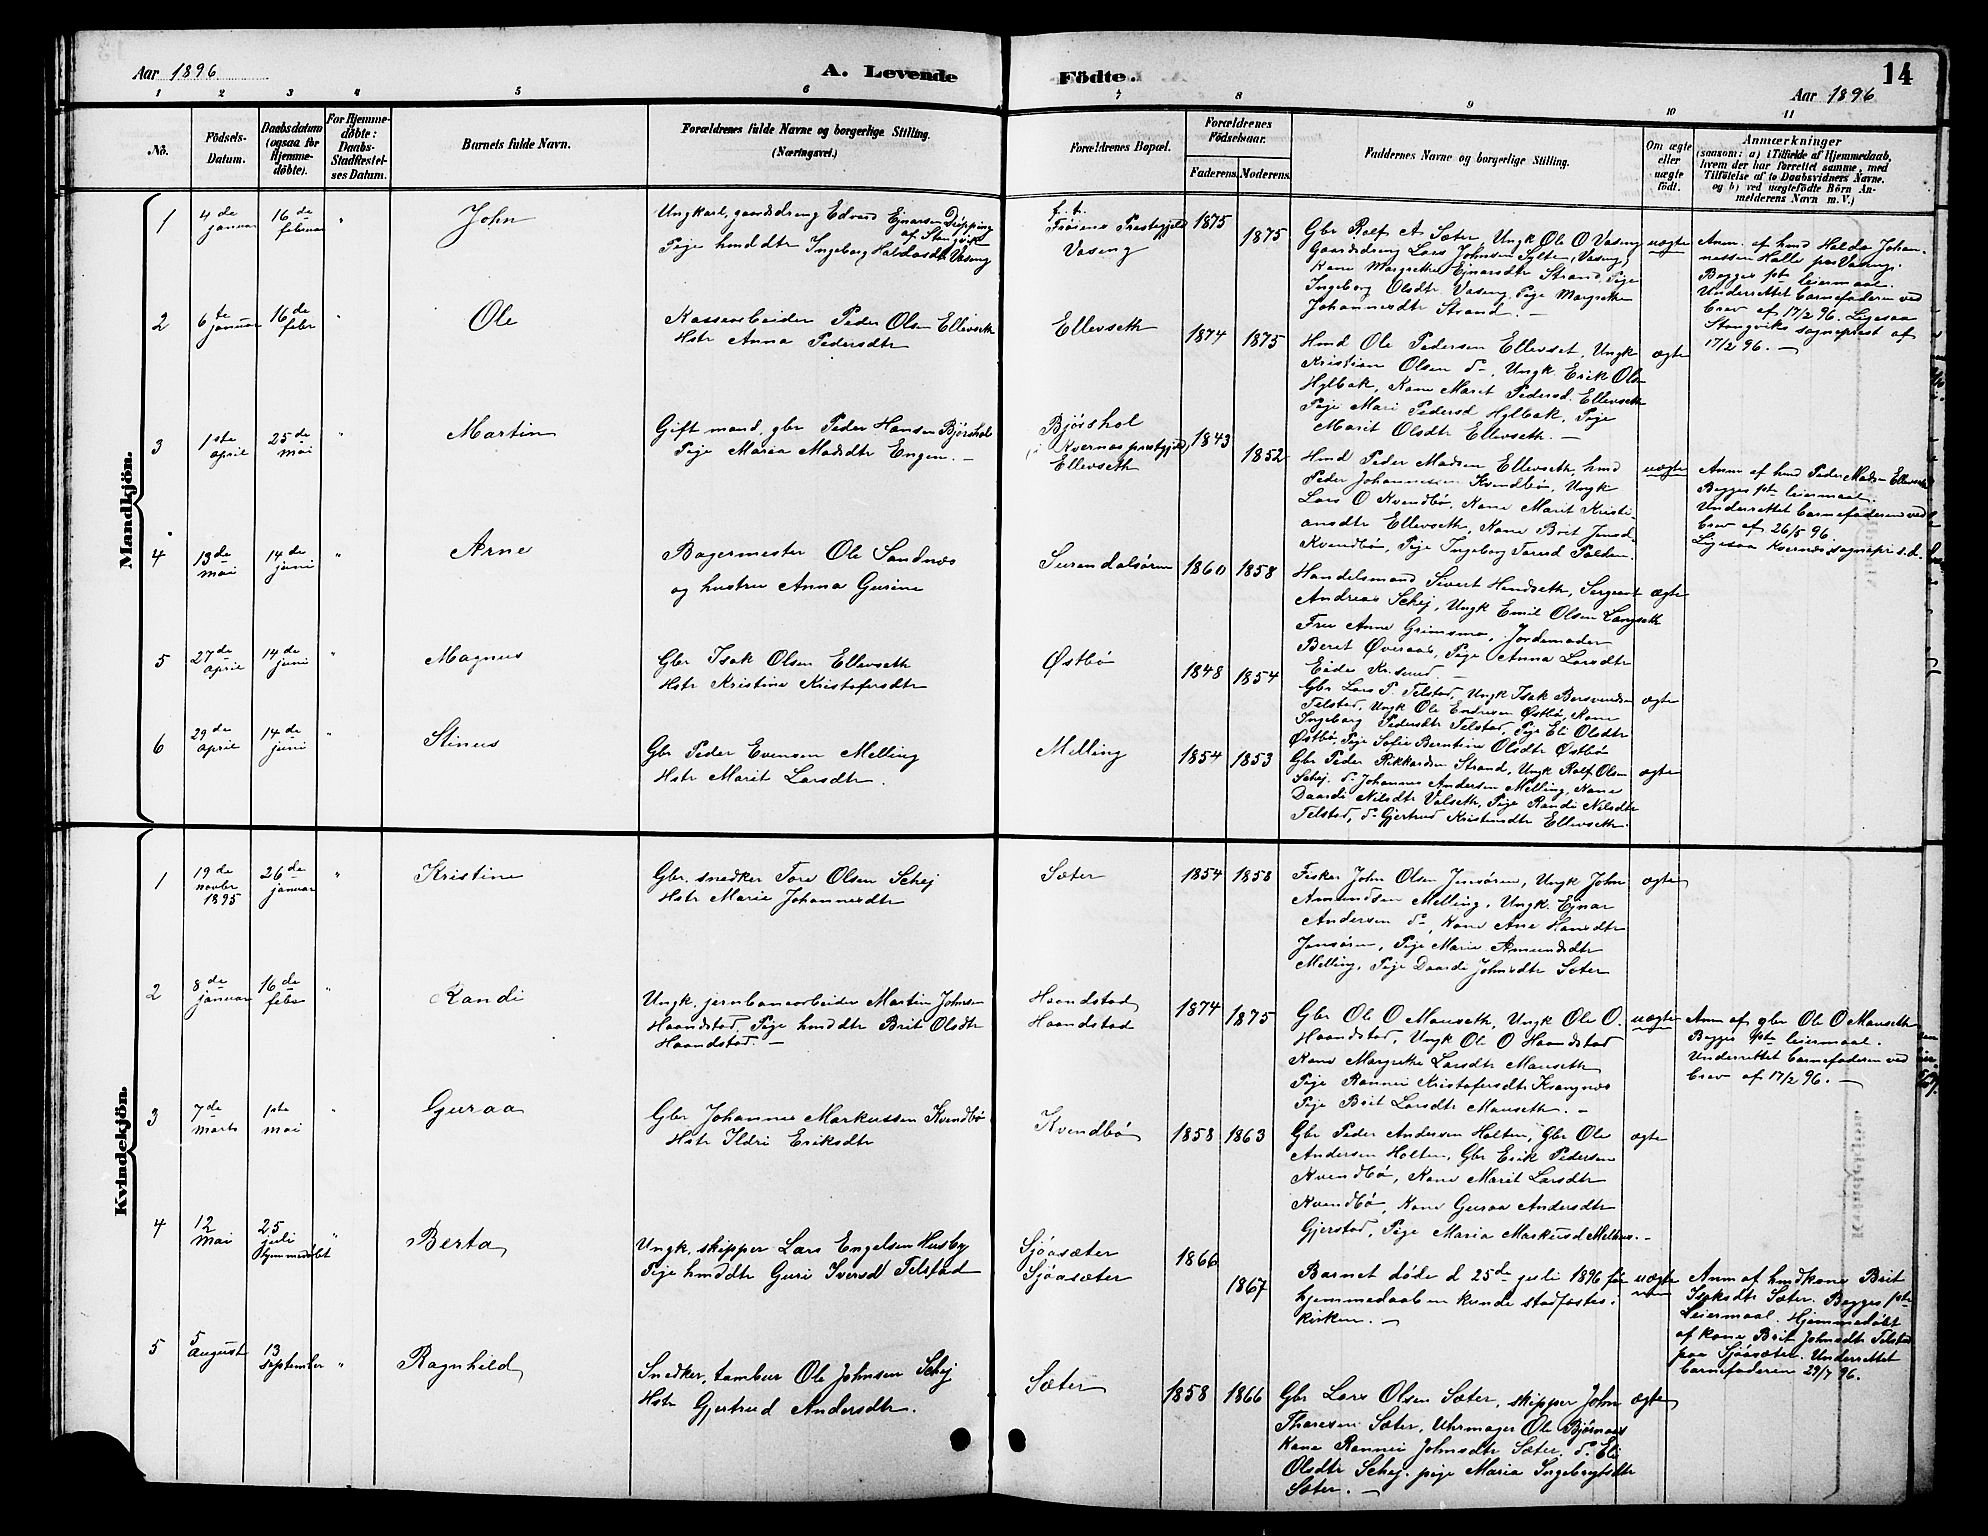 Aar 1896
A. Levende
Födte.
14
Aar 1896
1
2
3
4
5
6
7
8
9
10
11
No.
Födsels-
Datum.
Daabsdatum
(ogsaa for
Hjemme-
döbte).
For Hjemme-
döbte:
Daabs-
Stadfæstel-
ses Datum.
Barnets fulde Navn.
Forældrenes fulde Navne og borgerlige Stilling.
(Næringsvei.)
Forældrenes Bopæl.
Forældrenes
Födselsaar.
Faderens.
Moderens.
Faddernes Navne og borgerlige Stilling.
Om ægte
eller
uægte
født.
Anmærkninger
(saasom: a) i Tilfælde af Hjemmedaab,
hvem der har forrettet samme, med
Tilföielse af to Daabsvidners Navne.
og b) ved uægtefödte Börn An-
melderens Navn m.V.)
Mandkjön.
1
4de
januar
16de
februar
"
John
Ungkarl, gaardsdreng Edvard Ejnarsen Dröpping
af Stangvik
Pige hmddtr Ingeborg Haldosdtr Vaseng
f. t.
Frøiens Prestegjeld
Vaseng
1875
1875
Gbr Rolf A Sæter, Ungk Ole O Vaseng
Gaardsdreng Lars Johnsen Sylten, Vaseng,
Kone Margrethe Ejnarsdtr Strand, Pige
Ingeborg Olsdtr Vaseng, Pige Margrethe
Johannesdtr Strand. —
uægte
Anm. af hmd Haldo Johan-
nessen Halle paa Vaseng.
Begges 1ste leiermaal.
Underrettet barnefaderen ved
brev af 17/2 96. Ligesaa
Stangviks sogneprest af
17/2 96. —
2
6te
januar
16de
febr
"
Ole
Kassearbeider Peder Olsen Ellevseth
Hstr Anna Pedersdtr
Ellevseth
1874
1875
Hmd Ole Pedersen Ellevset, Ungk
Kristian Olsen do, Ungk Erik Olsen
Hylbak, Kone Marit Pedersd. Ellevseth
Pige Mari Pedersd Hylbak, Pige
Marit Olsdtr Ellevseth. —
ægte
3
1ste
april
25de
mai
"
Martin
Gift mand, gbr Peder Hansen Bjørshol
Pige Maria Madsdtr Engen. —
Bjørshol
(i Kvernes prestegjeld)
Ellevseth
1843
1852
Hmd Peder Madsen Ellevseth, hmd
Peder Johannessen Kvendbø, Ungk
Lars O Kvendbø, Kone Marit Kristi-
ansdtr Ellevseth, Kone Brit Jensd
Kvendbø, Pige Ingeborg Toresd Polden.
uægte
Anm af hmd Peder Madsen Ellevseth
Begges 1ste leiermaal.
Underrettet barnefaderen ved
brev af 26/5 96.
Ligesaa Kvernes sognepr. s.d.
4
13de
mai
14de
juni
"
Arne
Bagermester Ole Sandnes
og hustru Anna Gurine
Surendalsören
1860
1858
Handelsmand Sivert Hendseth, Sergeant
Andreas Schej, Ungk Emil Olsen Langseth
Fru Anne Grimsmo, Jordemoder
Beret Øveraas, Pige Anna Larsdtr
Eide Kr.sund. —
ægte
5
27de
april
14de
juni
"
Magnus
Gbr Isak Olsen Ellevseth
Hstr Kristine Kristofersdtr
Østbø
1848
1854
Gbr Lars P. Telstad, Ungk Isak Bersvendsen
Telstad, Ungk Ole Endresen Østbø, Kone
Ingeborg Pedersdtr Telstad, Pige Eli Olsdtr
Østbø, Pige Sofie Berntine Olsdtr Østbø
ægte
6
29de
april
14de
juni
"
Stinus
Gbr Peder Evensen Melling
Hstr Marit Larsdtr.
Melling
1854
1853
Gbr Peder Rikkardsen Strand, Ungk Rolf Olsen
Schej. do Johannes Andersen Melling, Kone
Daardi Nilsdtr Valseth, Pige Randi Nilsdtr
Telstad, do Gjertrud Kristensdtr Ellevseth.
ægte
Kvindekjön.
1
19de
novbr
1895
26de
januar
"
Kristine
Gbr. snedker Tore Olsen Schej
Hstr Marie Johannesdtr
Sæter
1854
1858
Fisker John Olsen Jensøren, Ungk John
Amundsen Melling, Ungk. Ejnar
Andersen do, Kone Ane Hansdtr
Jensøren, Pige Marie Amundsdtr
Melling, Pige Daardi Johnsdtr Sæter
ægte
2
8de
januar
16de
febr
"
Randi
Ungk. jernbanearbeider Martin Johnsen
Haandstad, Pige hmddtr Brit Olsdtr
Haandstad. —
Haandstad
Haandstad
1874
1875
Gbr Ole O Mauseth, Ungk Ole O.
Haandstad, Ungk Ole O Haandstad
Kone Margrethe Larsdtr Mauseth
Pige Rannei Kristofersdtr Krangnes
Pige Brit Larsdtr Mauseth. —
uægte
Anm af gbr Ole O Mauseth
Begges 1ste leiermaal.
Underrettet barnefaderen ved
brev af 17/2 96. —
3
7de
marts
1ste
mai
"
Guraa
Gbr Johannes Markussen Kvendbø
Hstr Ildri Eriksdtr
Kvendbø
1858
1863
Gbr Peder Andersen Holten, Gbr Ole
Andersen Holten, Gbr Erik Pedersen
Kvendbø, Kone Marit Larsdtr
Kvendbø, Kone Guraa Andersdtr
Gjerstad, Pige Maria Markusd Melhus. —
ægte
4
12
mai
25
juli
hjemmedøbt
"
Berta
Ungk, skipper Lars Engelsen Husby
Pige hmddtr Guri Iversd Telstad
Sjøasæter
Sjøasæter
1866
1867
Barnet døde d 25de juli 1896 før
hjemmedaaben kunde stadfæstes i
kirken. —
uægte
Anm af hmdkone Brit
Isaksdtr Sæter. Begges 1ste
Leiermaal. Hjemmedøbt
af kone Brit Johnsdtr Telstad
paa Sjøasæter. Underrettet
barnefaderen 29/7 96.
5
5
august
13
september
"
Ragnhild
Snedker, tambur Ole Johnsen Schej
Hstr Gjertrud Andersdtr.
Sæter
1858
1866
Gbr Lars Olsen Sæter, skipper John
Tharesen Sæter, Uhrmager Ole Bjørnaas
Kone Rannei Johnsdtr Sæter, do Eli
Olsdtr Schej. pige Maria Ingebrigtsdtr
Sæter. —
ægte